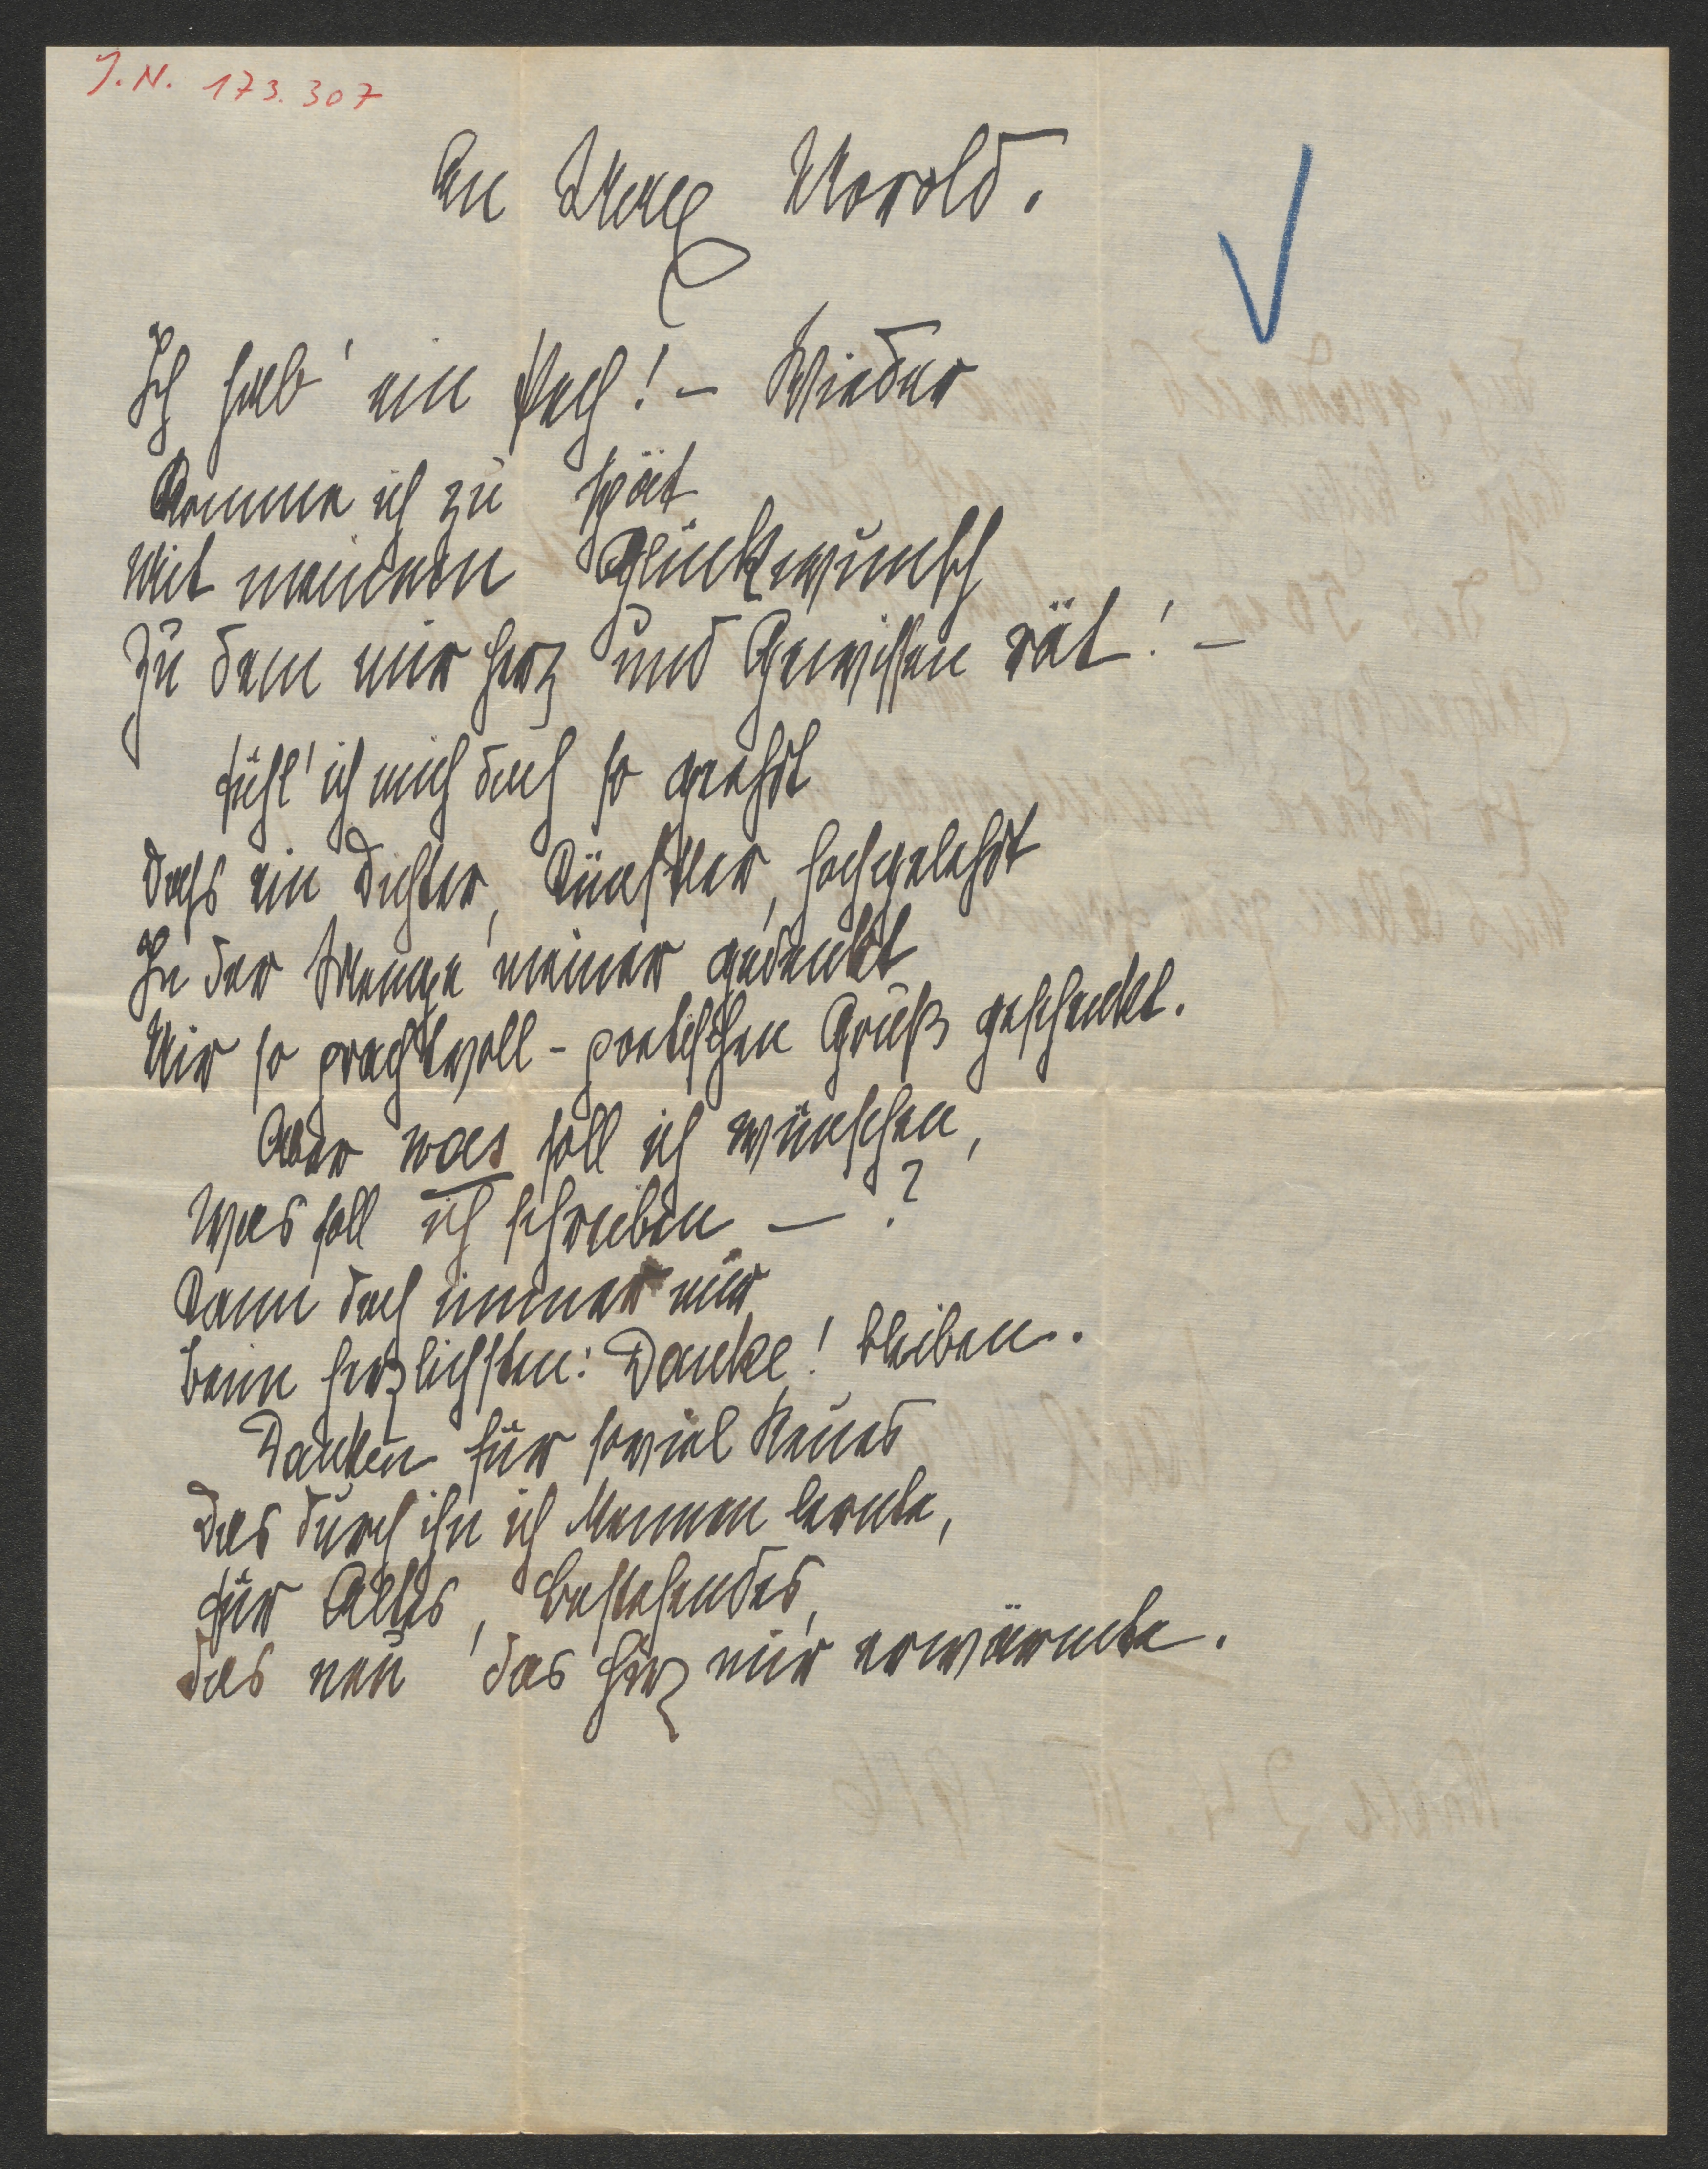 J.N. 173.307
An Max Morold.
Ich hab' ein Pech! – Wieder
Komme ich zu spät
Mit meinem Glückwunsch
Zu dem mir Herz und Gewissen rät! –
Fühl' ich mich doch so geehrt
Dass ein Dichter, Künstler, hochgelehrt
In der Menge meiner gedenkt
Mir so prachtvoll-poetischen Gruß geschenkt.
Aber was soll ich wünschen,
Was soll ich schreiben – ?
Kann doch immer nur
beim herzlichsten: Danke! bleiben.
Danken für soviel Neues
Das durch ihn ich kennen lernte,
für Altes, Bestehendes,
das neu das Herz mir erwärmte.